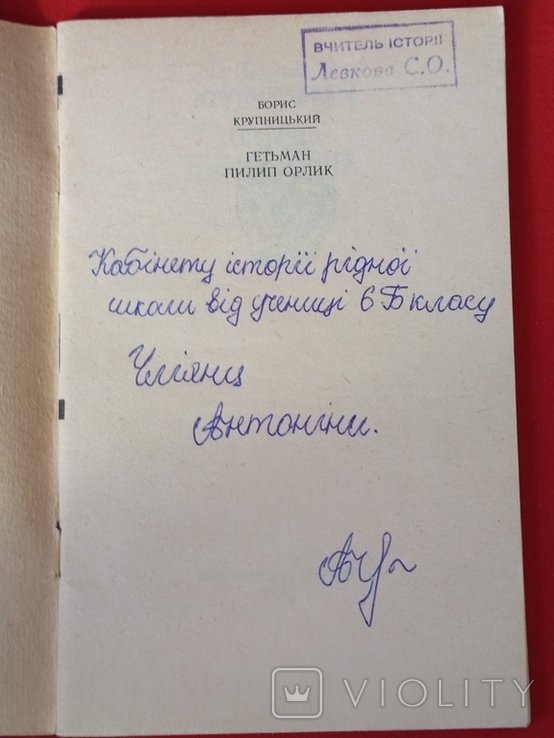 ВЧИТЕЛЬ ІСТОРІЇ
Лєвкова С.О.
БОРИС
КРУПНИЦЬКИЙ
ГЕТЬМАН
ПИЛИП ОРЛИК
Кабінету історії рідної
школи від учениці 6 Б класу
Антоніни.
VIOLITY